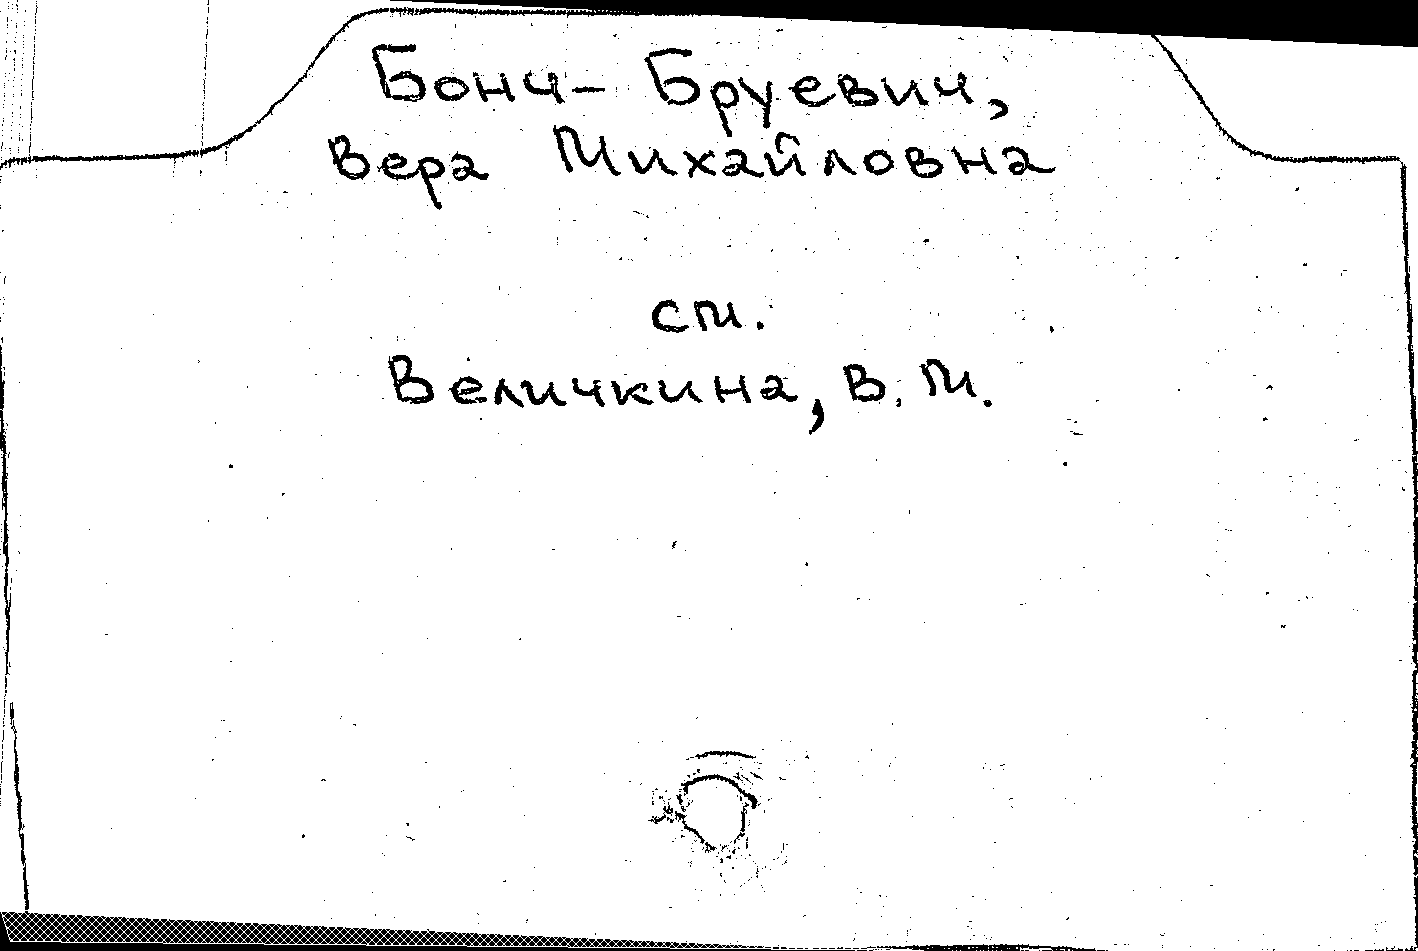 Бонч- Бруевич,
Вера Михайловна
см.
Величкина, В. М.